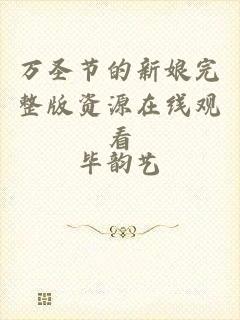 万圣节的新娘完
整版资源在线观
看
毕韵艺